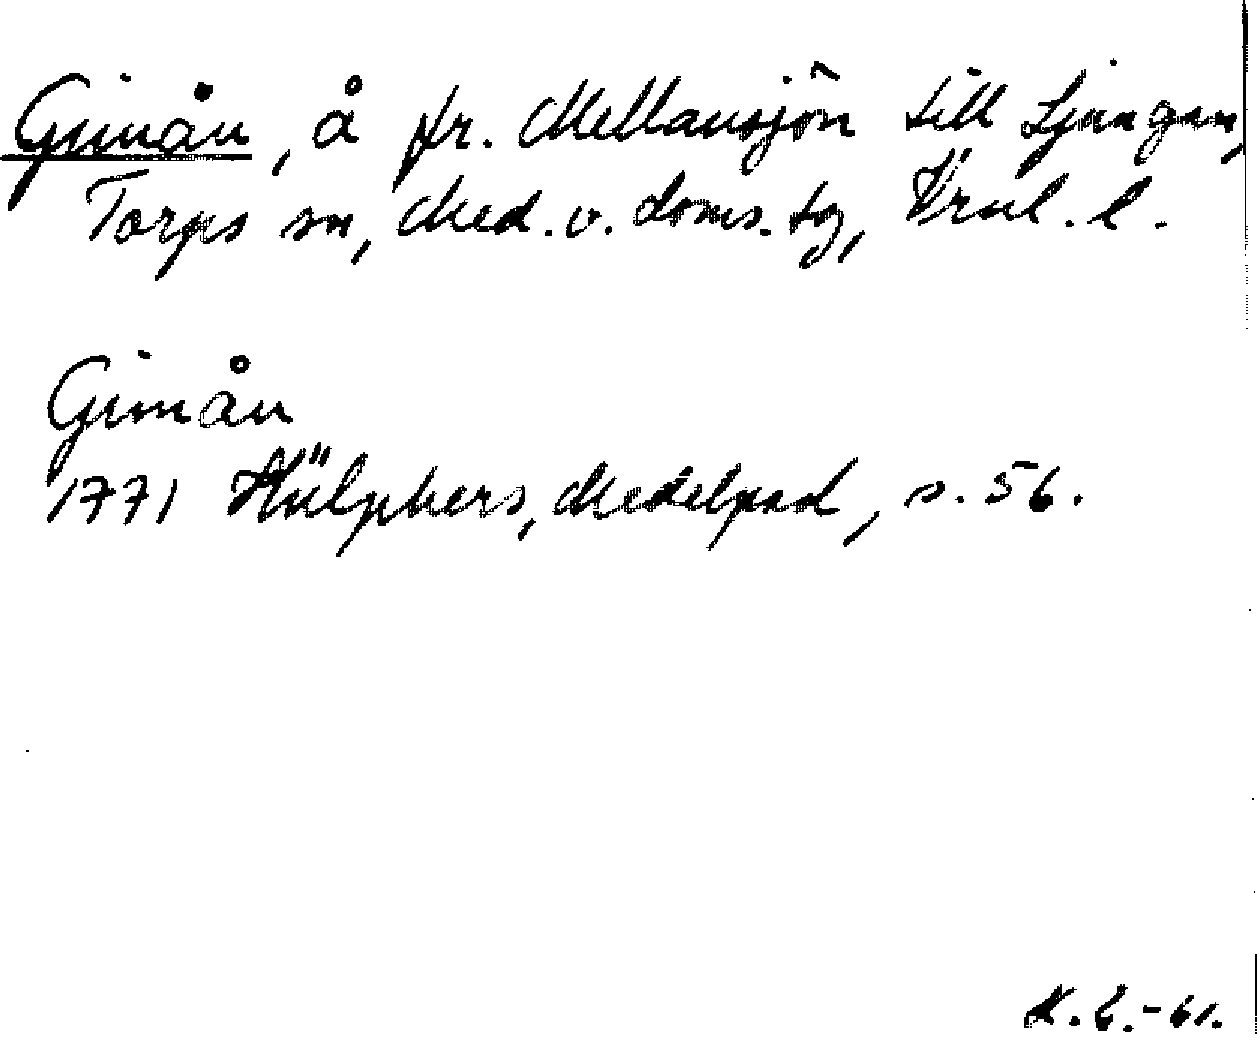 Gimån, å fr. Mellansjön till Ljungan,
Torps sn, Med. v. doms. tg, Vrnl. l.
Gimån
1771 Hülphers, Medelpad, s. 56.
K. E. -61.